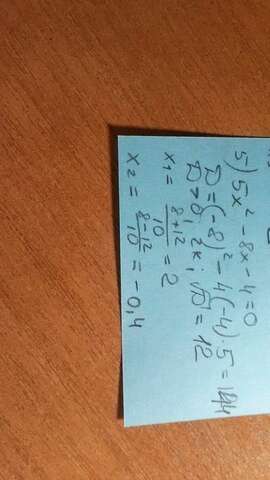 5) 5x² - 8x - 4 = 0
D = (-8)² - 4(-4)·5 = 144
D > 0, 2к; √D = 12
x₁ = \frac{8+12}{10} = 2
x₂ = \frac{8-12}{10} = -0,4